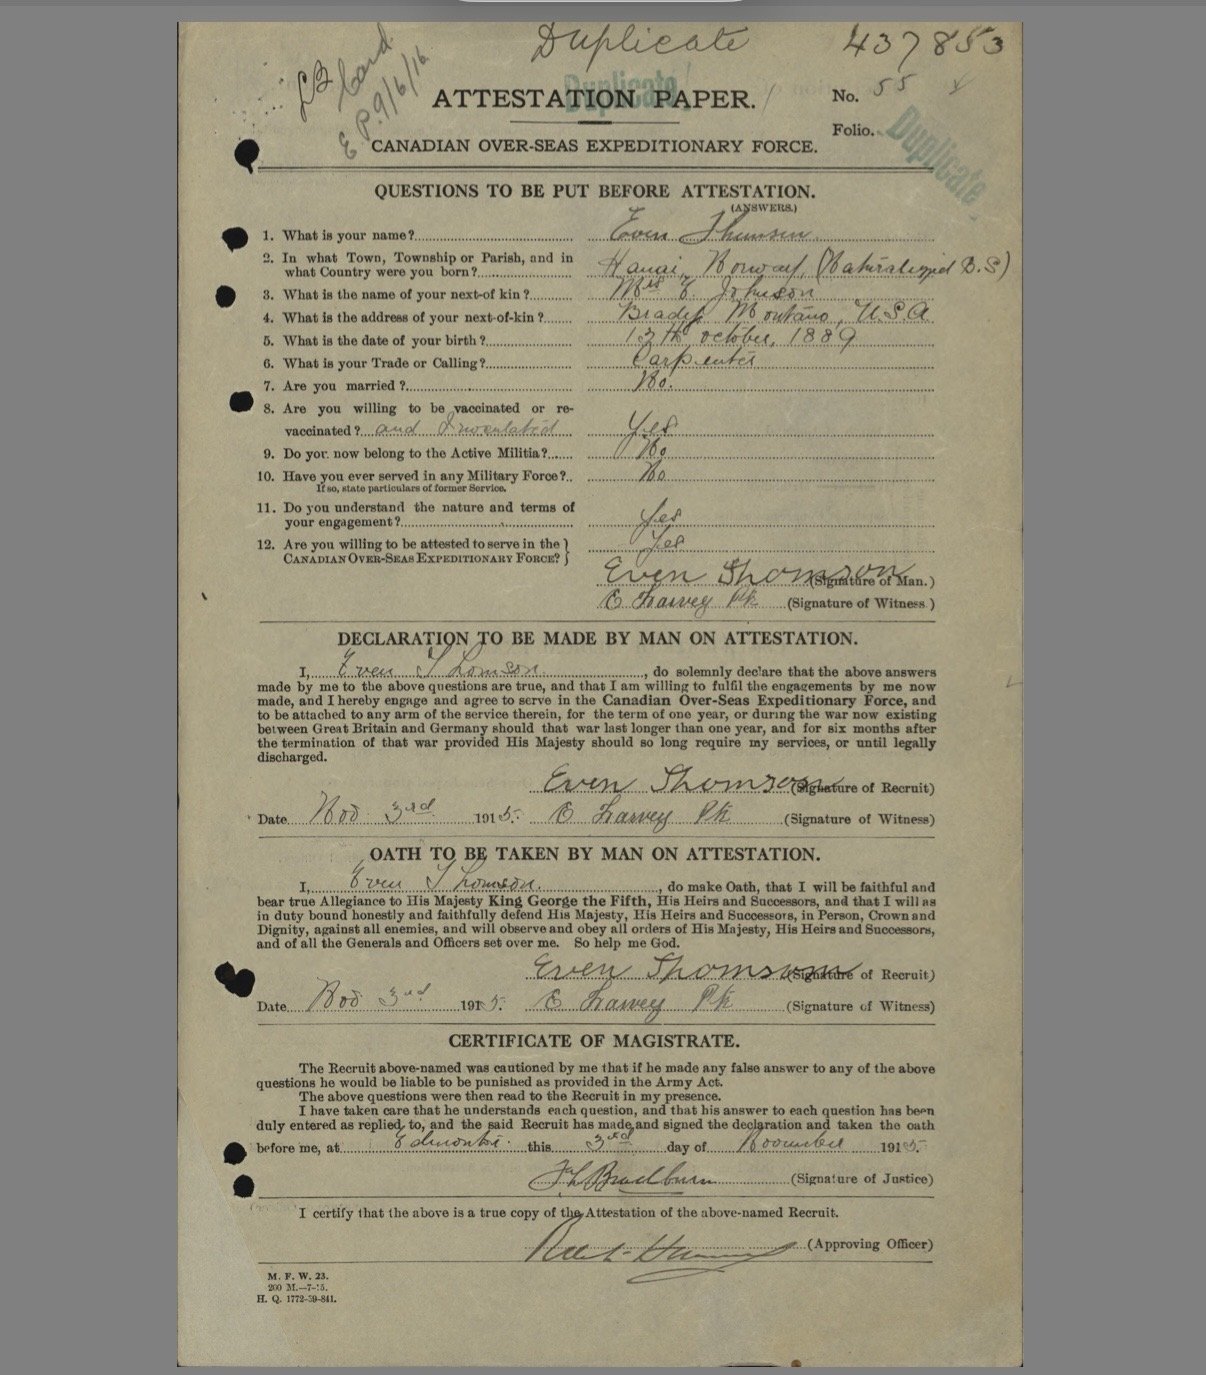 Duplicate 437853
L3 Card
E.P. 9/6/16
Duplicate!
ATTESTATION PAPER.
No. 55
Folio.
Duplicate
CANADIAN OVER-SEAS EXPEDITIONARY FORCE.
QUESTIONS TO BE PUT BEFORE ATTESTATION.
(ANSWERS.)
1. What is your name? Even Thomsen
2. In what Town, Township or Parish, and in
what Country were you born? Norway, (Naturalized U.S)
3. What is the name of your next-of kin? Mrs E. Johnson
4. What is the address of your next-of-kin? Montana, U.S.A
5. What is the date of your birth? 13th October, 1889
6. What is your Trade or Calling? Carpenter
7. Are you married? No.
8. Are you willing to be vaccinated or re-
vaccinated? and Inoculated Yes
9. Do you now belong to the Active Militia? No
10. Have you ever served in any Military Force? No
If so, state particulars of former Service.
11. Do you understand the nature and terms of
your engagement? Yes
12. Are you willing to be attested to serve in the
CANADIAN OVER-SEAS EXPEDITIONARY FORCE? Yes
Even Thomson (Signature of Man.)
C Harvey Pte (Signature of Witness)
DECLARATION TO BE MADE BY MAN ON ATTESTATION.
I, Even Thomson, do solemnly declare that the above answers
made by me to the above questions are true, and that I am willing to fulfil the engagements by me now
made, and I hereby engage and agree to serve in the Canadian Over-Seas Expeditionary Force, and
to be attached to any arm of the service therein, for the term of one year, or during the war now existing
between Great Britain and Germany should that war last longer than one year, and for six months after
the termination of that war provided His Majesty should so long require my services, or until legally
discharged.
Even Thomson (Signature of Recruit)
Date Nov 3rd 1915. C Harvey Pte (Signature of Witness)
OATH TO BE TAKEN BY MAN ON ATTESTATION.
I, Even Thomson., do make Oath, that I will be faithful and
bear true Allegiance to His Majesty King George the Fifth, His Heirs and Successors, and that I will as
in duty bound honestly and faithfully defend His Majesty, His Heirs and Successors, in Person, Crown and
Dignity, against all enemies, and will observe and obey all orders of His Majesty, His Heirs and Successors,
and of all the Generals and Officers set over me. So help me God.
Even Thomson (Signature of Recruit)
Date Nov 3rd 1915. C Harvey Pte (Signature of Witness)
CERTIFICATE OF MAGISTRATE.
The Recruit above-named was cautioned by me that if he made any false answer to any of the above
questions he would be liable to be punished as provided in the Army Act.
The above questions were then read to the Recruit in my presence.
I have taken care that he understands each question, and that his answer to each question has been
duly entered as replied to, and the said Recruit has made and signed the declaration and taken the oath
before me, at Edmonton this 3rd day of November 1915.
Bradburn (Signature of Justice)
I certify that the above is a true copy of the Attestation of the above-named Recruit.
(Approving Officer)
M. F. W. 23.
200 M.—7-15.
H. Q. 1772-39-841.